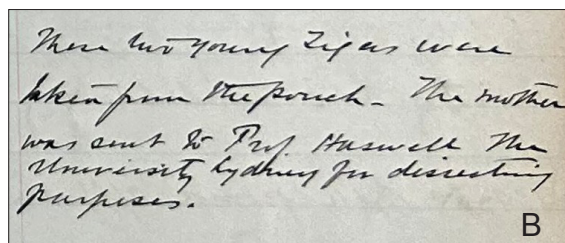 These two young Tigers were
taken from the pouch - The mother
was sent to Prof Haswell The
University Sydney for dissecting
purposes.
B